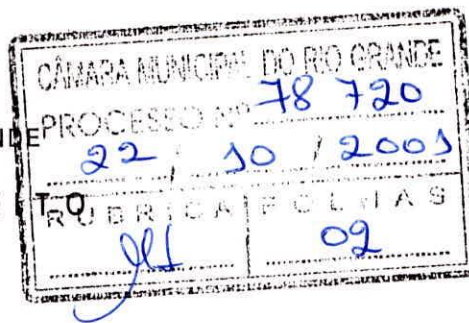 CÂMARA MUNICIPAL DO RIO GRANDE
PROCESSO Nº 78 720
22 / 10 / 2001
RUBRICA FOLHAS
02